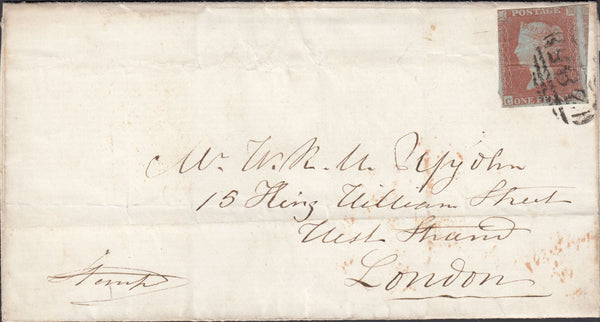 POSTAGE
ONE PENNY
Mr. W. R. M. Upjohn
15 King William Street
West Strand
London
Stamp